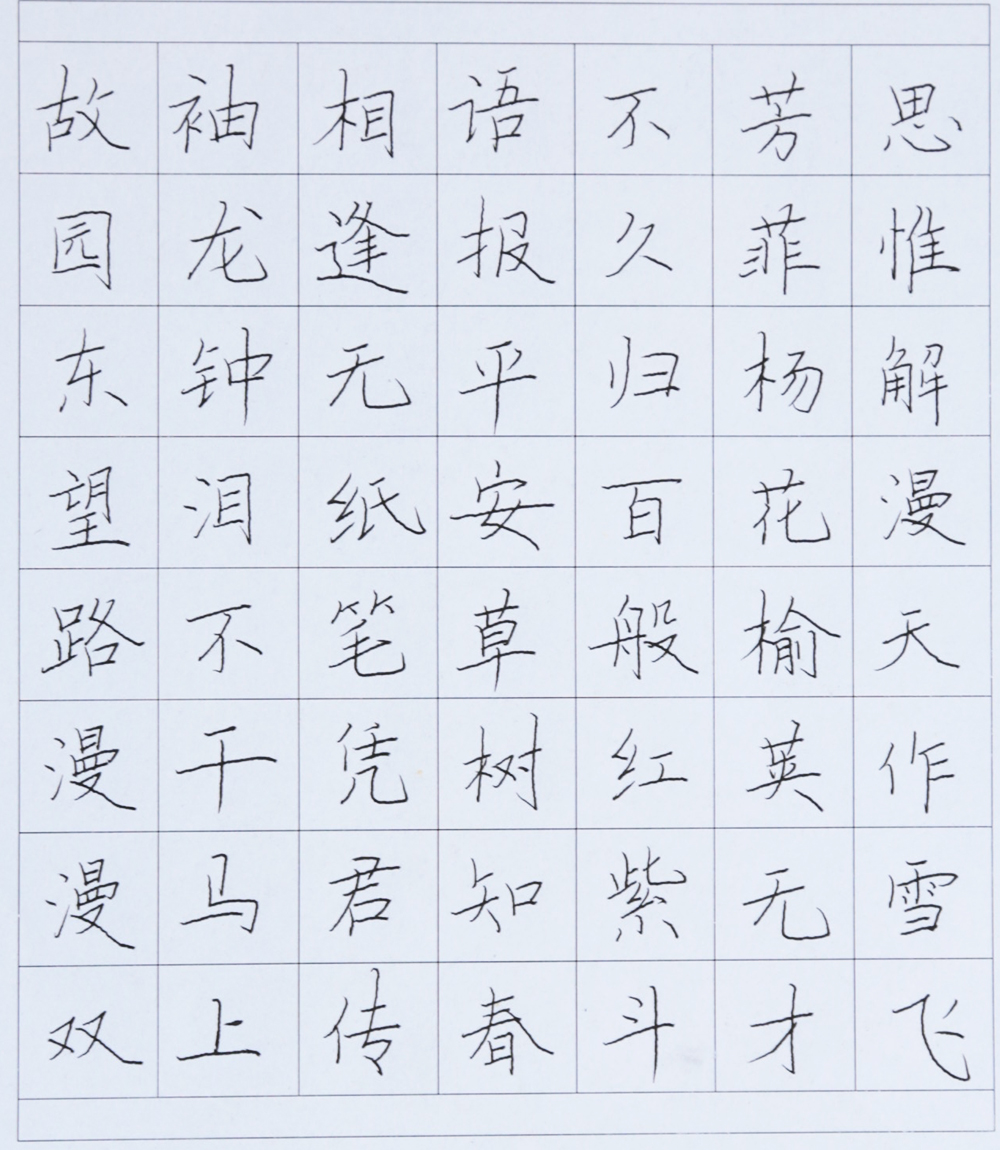 故园东望路漫漫双
袖龙钟泪不干马上
相逢无纸笔凭君传
语报平安草树知春
不久归百般红紫斗
芳菲杨花榆英无才
思惟解漫天作雪飞